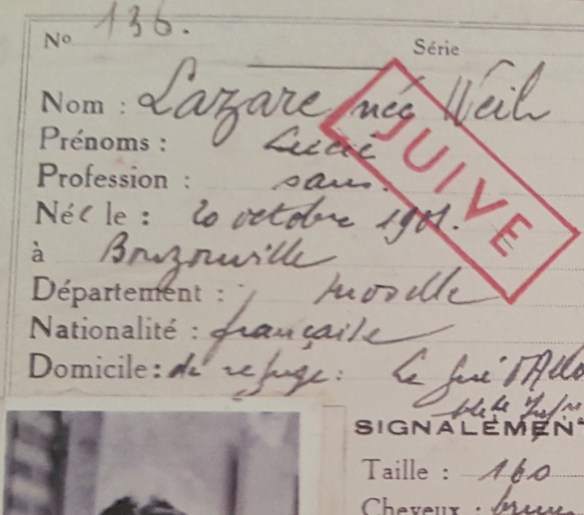 No 136.
Série
Nom : Lazare née Weil
JUIVE
Prénoms : Lucie
Profession : sans.
Née le : 20 octobre 1901.
à Bouzonville
Département : Moselle
Nationalité : française
Domicile : de refuge : Le Gué d'Allo
SIGNALEMENT
Taille : 160
Cheveux : bruns